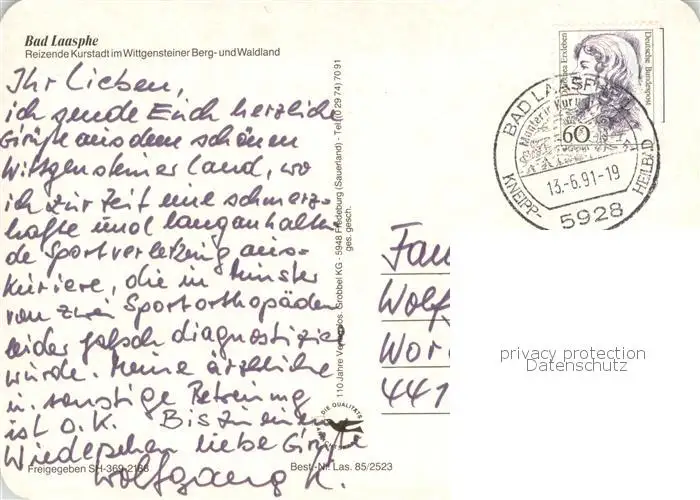 Bad Laasphe
Reizende Kurstadt im Wittgensteiner Berg- und Waldland
Ihr Lieben,
ich sende Euch herzliche
Grüße aus dem schönen
Wittgensteiner Land, wo
ich zur Zeit eine schmerz-
hafte und langanhalten
de Sportverletzung aus-
kuriere, die in Münster
von zwei Sportorthopäden
leider falsch diagnostiziert
wurde. Meine ärztliche
u. sonstige Betreuung
ist O.K. Bis zu einem
Wiedersehen liebe Grüße
Wolfgang K.
Freigegeben SH-369-2168
Best.-Nr. Las. 85/2523
110 Jahre Verlag Jos. Grobbel KG - 5948 Fredeburg (Sauerland) - Tel. (0 29 74) 70 91
ges. gesch.
DIE QUALITÄTS
Erxleben
Deutsche Bundespost
60
BAD LAASPHE
13.-6.91-19
KNEIPP-
HEILBAD
5928
Fam
Wolf
Wor
441
privacy protection
Datenschutz